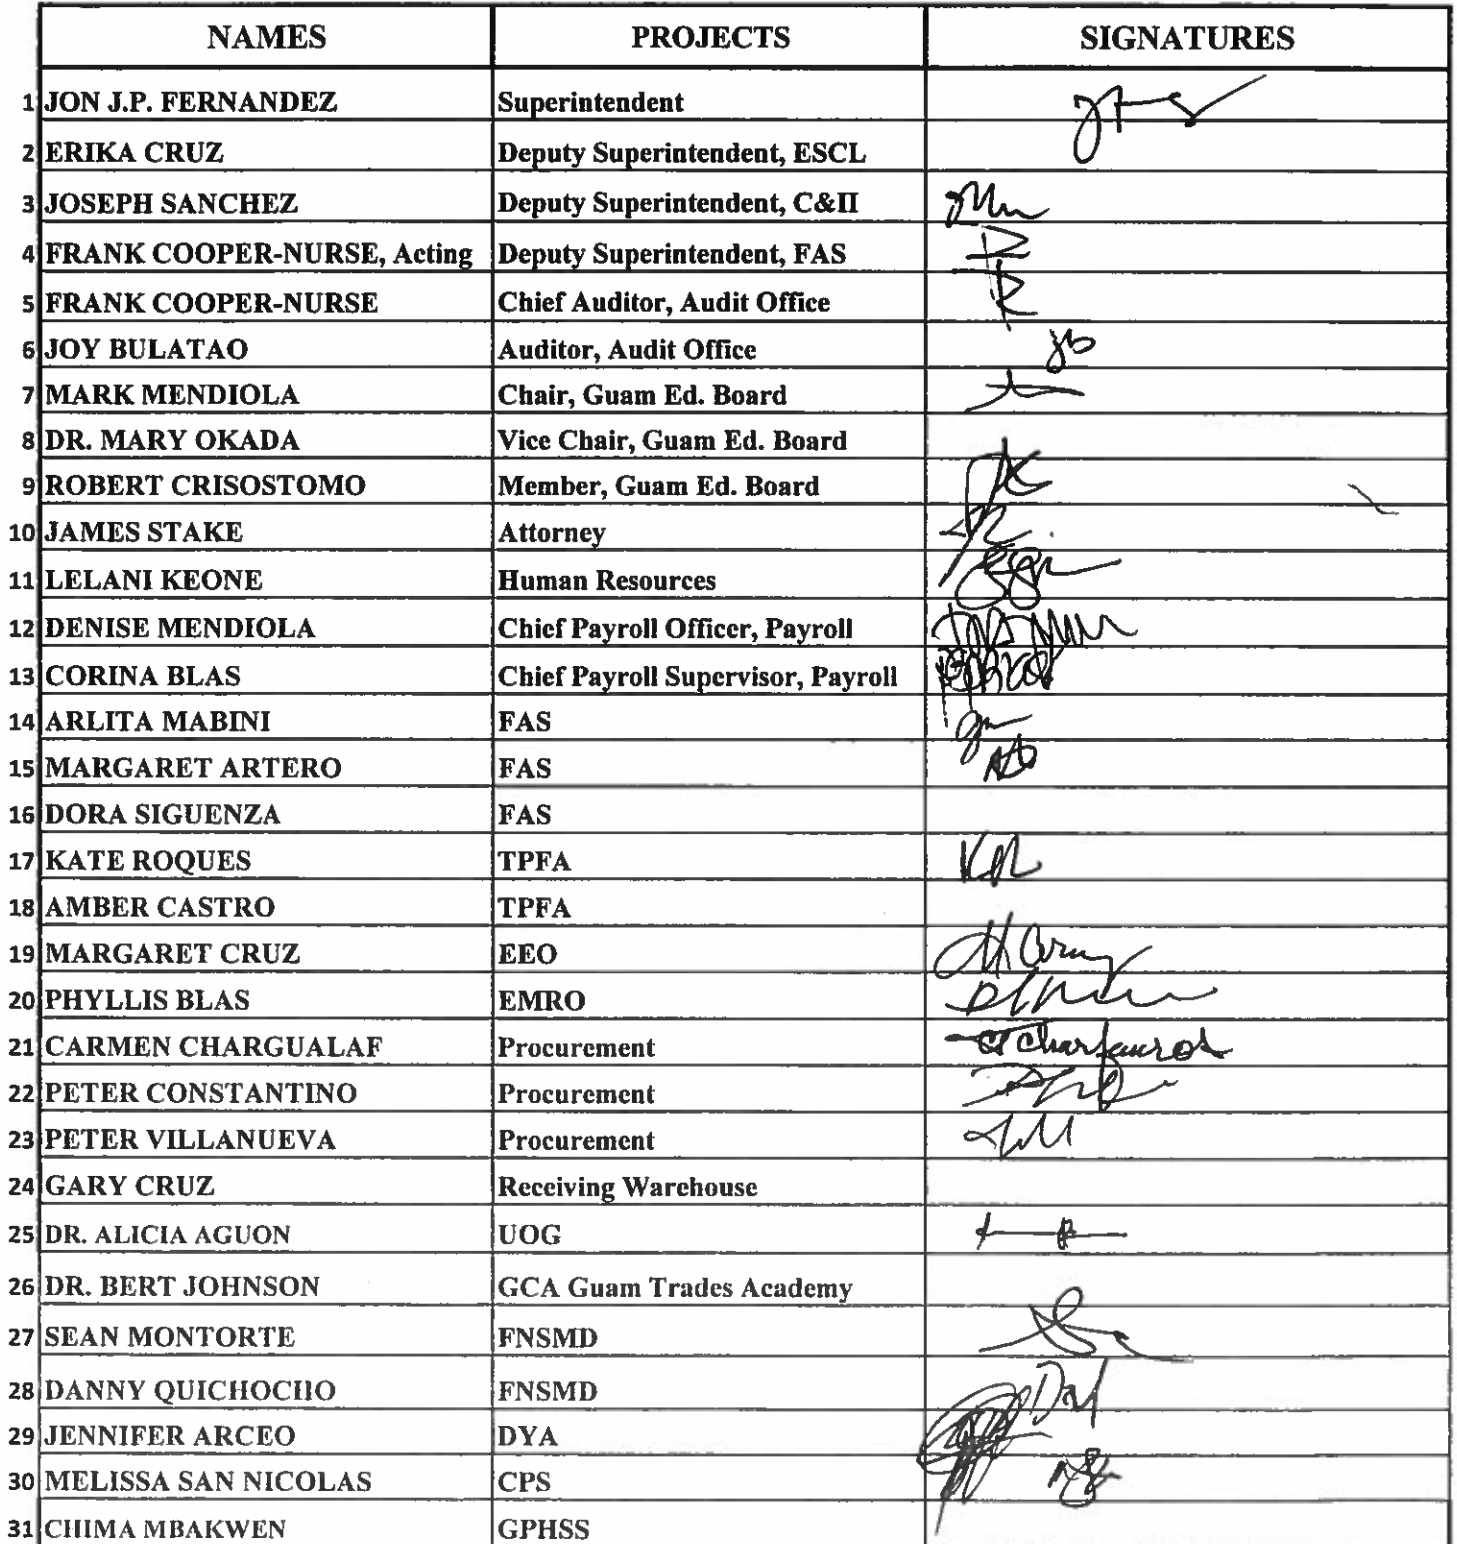 NAMES PROJECTS SIGNATURES
1 JON J.P. FERNANDEZ Superintendent
2 ERIKA CRUZ Deputy Superintendent, ESCL
3 JOSEPH SANCHEZ Deputy Superintendent, C&II
4 FRANK COOPER-NURSE, Acting Deputy Superintendent, FAS
5 FRANK COOPER-NURSE Chief Auditor, Audit Office
6 JOY BULATAO Auditor, Audit Office jb
7 MARK MENDIOLA Chair, Guam Ed. Board
8 DR. MARY OKADA Vice Chair, Guam Ed. Board
9 ROBERT CRISOSTOMO Member, Guam Ed. Board
10 JAMES STAKE Attorney
11 LELANI KEONE Human Resources
12 DENISE MENDIOLA Chief Payroll Officer, Payroll
13 CORINA BLAS Chief Payroll Supervisor, Payroll
14 ARLITA MABINI FAS
15 MARGARET ARTERO FAS
16 DORA SIGUENZA FAS
17 KATE ROQUES TPFA KR
18 AMBER CASTRO TPFA
19 MARGARET CRUZ EEO
20 PHYLLIS BLAS EMRO
21 CARMEN CHARGUALAF Procurement
22 PETER CONSTANTINO Procurement
23 PETER VILLANUEVA Procurement
24 GARY CRUZ Receiving Warehouse
25 DR. ALICIA AGUON UOG
26 DR. BERT JOHNSON GCA Guam Trades Academy
27 SEAN MONTORTE FNSMD
28 DANNY QUICHOCHO FNSMD
29 JENNIFER ARCEO DYA
30 MELISSA SAN NICOLAS CPS
31 CHIMA MBAKWEN GPHSS